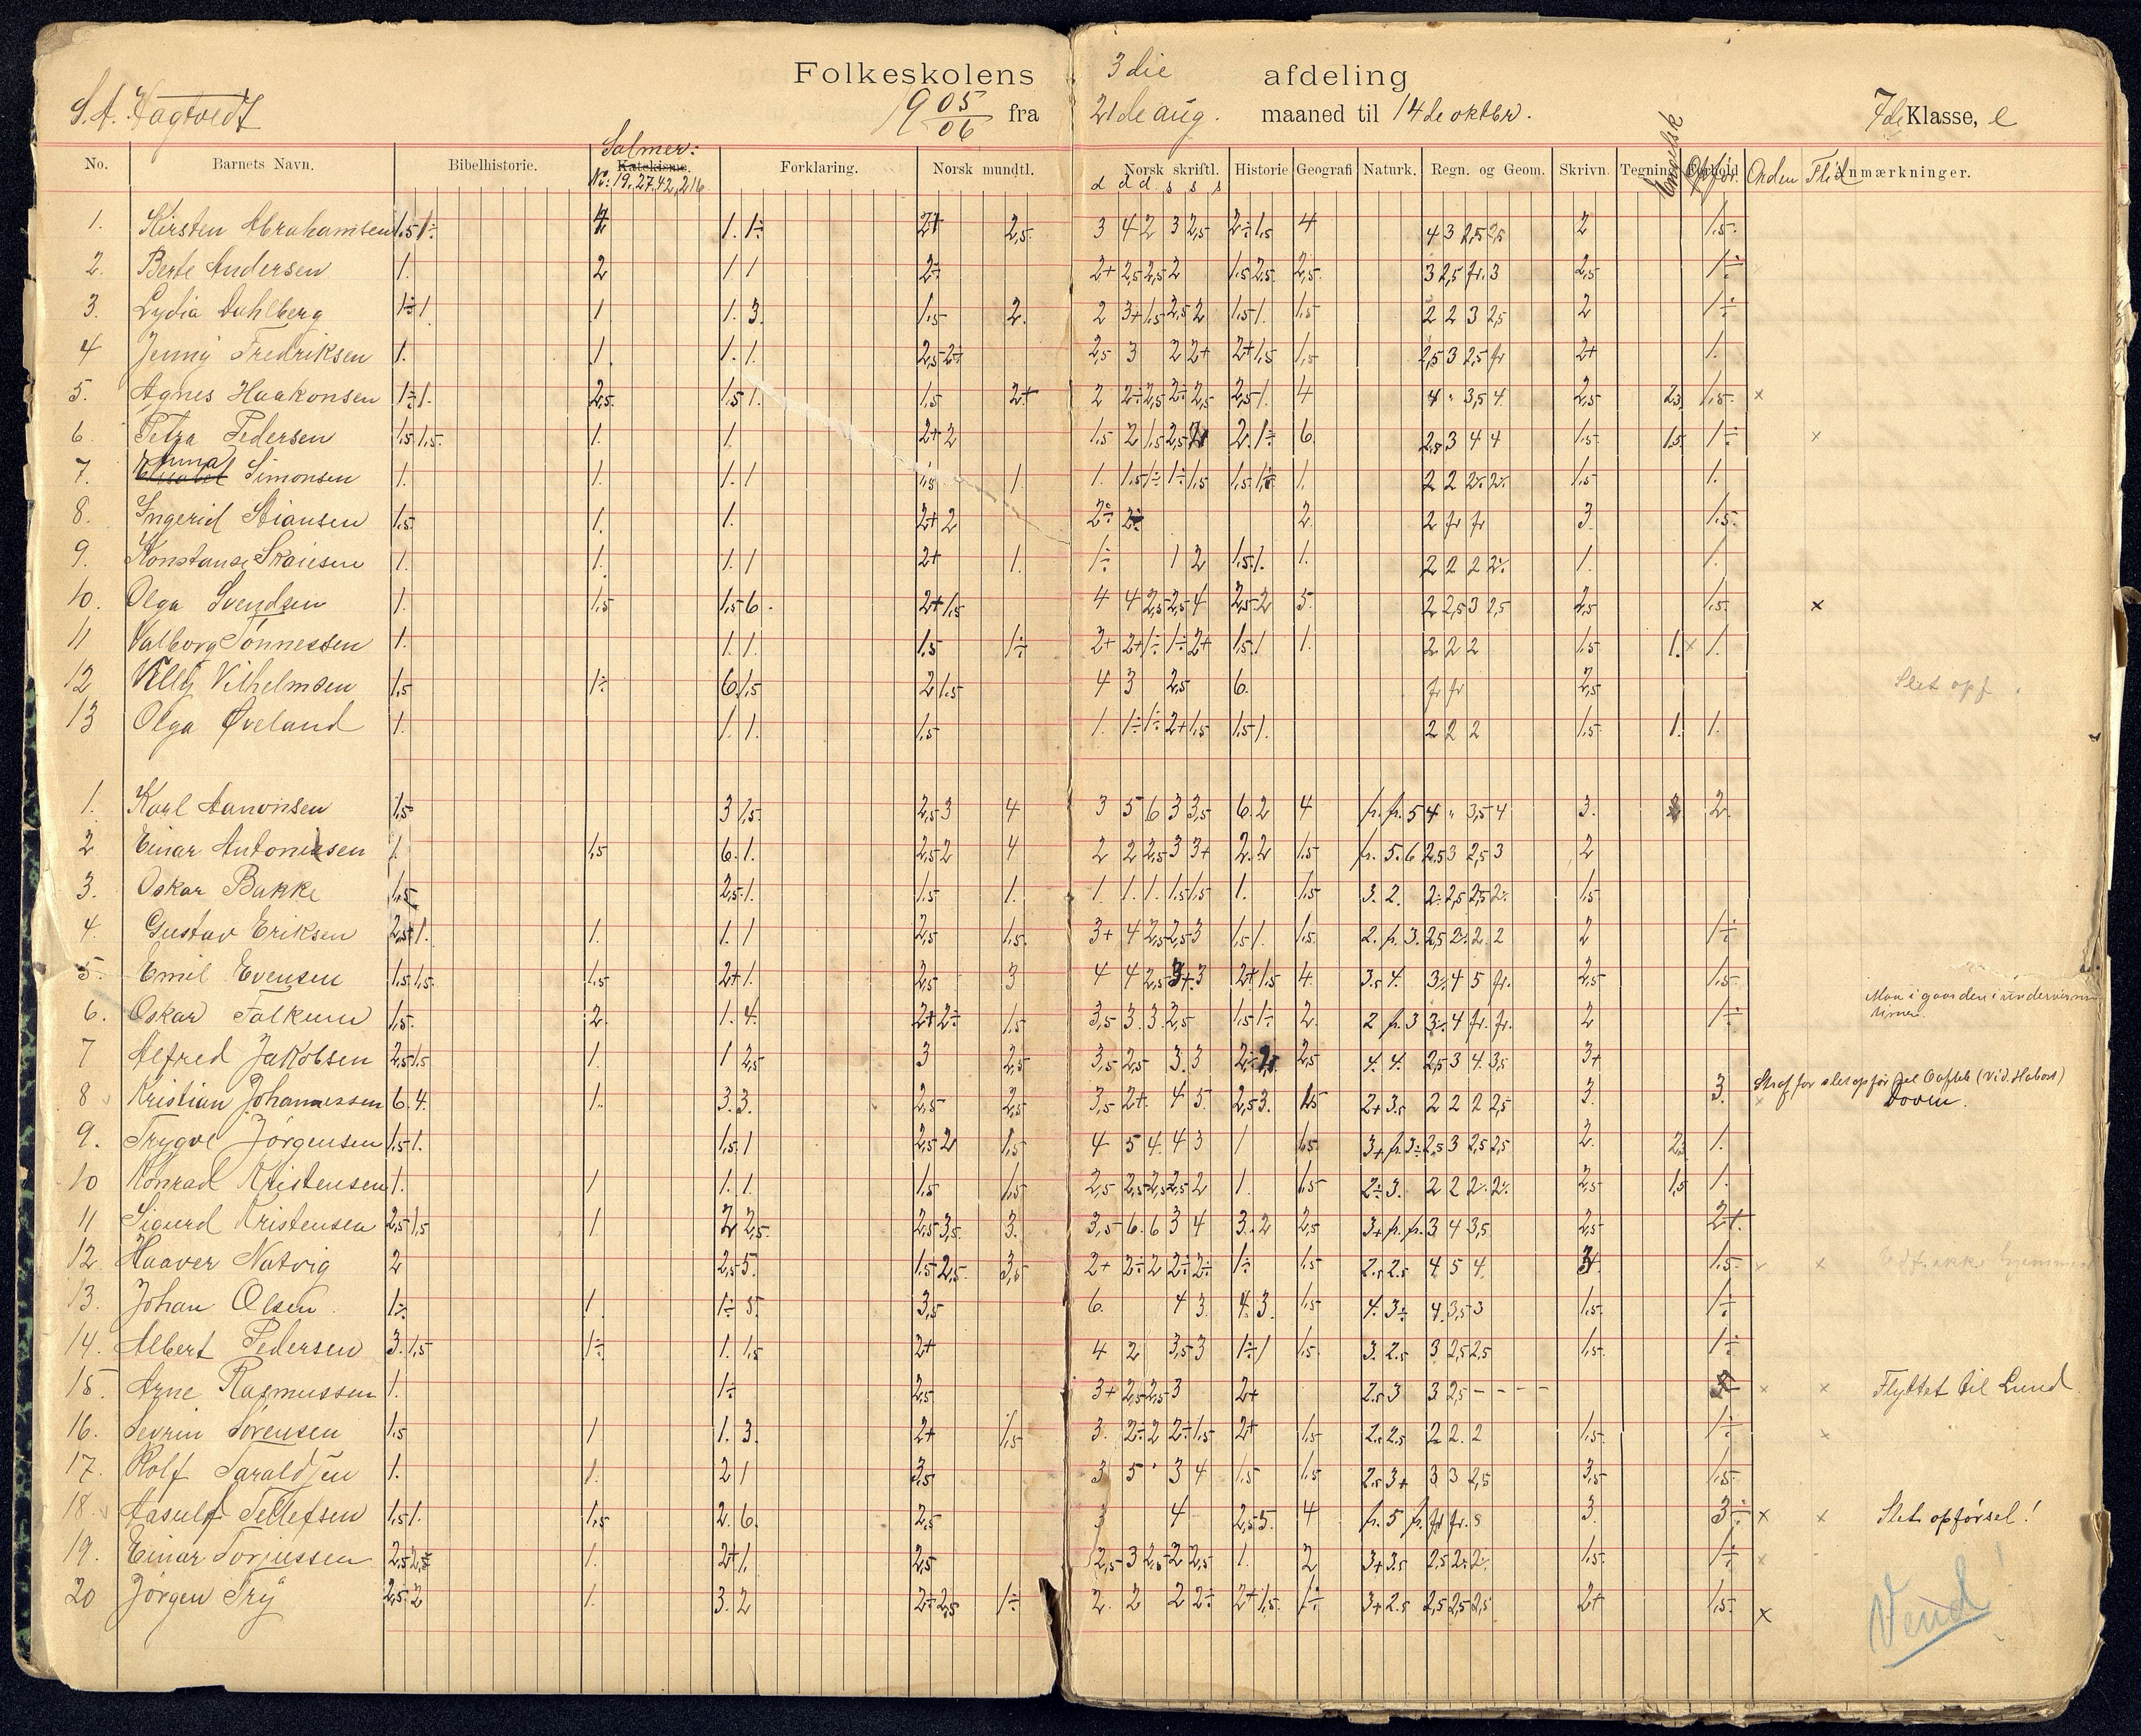 Folkeskolens 3die afdeling
S. A. Hagtvedt 1905/06 fra 21de aug. maaned til 14de oktbr. 7de Klasse, e
Salmer:
No. Barnets Navn. Bibelhistorie. Katekisme. Forklaring. Norsk mundtl. Norsk skriftl. Historie Geografi Naturk. Regn. og Geom. Skrivn. Tegning Engelsk Forhold Opfør. Orden Flid Anmærkninger.
No: 19, 27, 42, 216 d d d s s s
1. Kirsten Abrahamsen 1,5 1÷ 4 1. 1÷ 2+ 2,5 3 4 2 3 2,5 2÷ 1,5 4 4 3 2,5 2,5 2 1,5
2. Berte Andersen 1. 2 1 1 2÷ 2+ 2,5 2,5 2 1,5 2,5 2,5 3 2,5 fr. 3 2,5 1÷
3. Lydia Dahlberg 1÷ 1 1 1. 3. 1,5 2. 2 3+ 1,5 2,5 2 1,5 1. 1,5 2 2 3 2,5 2 1÷
4 Jenny Fredriksen 1. 1. 1. 1. 2,5 2÷ 2,5 3 2 2+ 2+ 1,5 1,5 2,5 3 2,5 fr 2+ 1.
5. Agnes Haakonsen 1÷ 1. 2,5 1,5 1. 1,5 2+ 2 2÷ 2,5 2÷ 2,5 2,5 1. 4 4 " 3,5 4 2,5 2,5 1,5 x
6. Petra Pedersen 1,5 1,5 1. 1. 2+ 2 1,5 2 1,5 2,5 2. 1÷ 6. 2,5 3 4 4 1,5 1,5 1÷ x
Anna
7. Elisabet Simonsen 1. 1. 1. 1 1,5 1. 1. 1,5 1÷ 1÷ 1,5 1,5 1. 2 2 2÷ 2÷ 1,5 1.
8. Ingerid Stiansen 1,5 1. 1. 2+ 2 2÷ 2. 2 fr fr 3 1,5
9. Konstanse Skaiesen 1. 1. 1. 1 2+ 1. 1÷ 1 2 1,5 1. 1. 2 2 2 2÷ 1. 1.
10. Olga Svendsen 1. 1,5 1,5 6. 2+ 1,5 4 4 2,5 2,5 4 2,5 2 5. 2 2,5 3 2,5 2,5 1,5 x
11 Valborg Tønnessen 1. 1. 1. 1,5 1÷ 2+ 2+ 1÷ 1÷ 2+ 1,5 1 1. 2 2 2 1,5 1. x 1.
12 Villy Vilhelmsen 1,5 1÷ 6 1,5 2 1,5 4 3 2,5 6. fr fr 2,5 Slet opf.
13 Olga Øveland 1. 1. 1. 1,5 1. 1÷ 1÷ 2+ 1,5 1,5 1. 2 2 2 1,5 1. 1.
1. Karl Aanonsen 1,5 3 1,5 2,5 3 4 3 5 6 3 3,5 6. 2 4 fr. fr. 5 4 " 3,5 4 3. 2.
2 Einar Antonisen 1. 1,5 6. 1. 2,5 2 4 2 2 2,5 3 3+ 2. 2 1,5 fr. 5. 6 2,5 3 2,5 3 2
3. Oskar Bakke 1,5 2,5 1. 1,5 1. 1. 1. 1. 1,5 1,5 1. 1,5 3. 2. 2÷ 2,5 2,5 2÷ 1,5
4. Gustav Eriksen 2,5 1. 1. 1. 1 2,5 1,5 3+ 4 2,5 2,5 3 1,5 1. 1,5 2. fr. 3. 2,5 2÷ 2. 2 2 1÷
5. Emil Evensen 1,5 1,5 1,5 2+ 1. 2,5 3 4 4 2,5 3+ 3 2+ 1,5 4. 3,5 4. 3÷ 4 5 fr. 2,5 1,5
6. Oskar Falkum 1,5 2. 1. 4. 2+ 2÷ 1,5 3,5 3. 3. 2,5 1,5 1÷ 2. 2 fr. 3 3÷ 4 fr. fr. 2 1÷ Maa i gaarden i
7 Alfred Jakobsen 2,5 1,5 1. 1 2,5 3 2,5 3,5 2,5 3. 3 2,5 4. 4. 2,5 3 4 3,5 3+
8 Kristian Johannessen 6. 4. 1. 3. 3. 2,5 2,5 3,5 2+ 4 5. 2,5 3. 1,5 2+ 3,5 2 2 2 2,5 3. 3. Straf for slet opfør
Doven.
9. Trygve Jørgensen 1,5 1. 1,5 1 2,5 2 1,5 4 5 4. 4 3 1 1,5 3+ fr. 3÷ 2,5 3 2,5 2,5 2. 2,5 1.
10 Konrad Kristensen 1. 1 1. 1. 1,5 1,5 2,5 2,5 2,5 2,5 2 1. 1,5 2÷ 3. 2 2 2÷ 2÷ 2,5 1,5 1.
11 Sigurd Kristensen 2,5 1,5 1 2 2,5 2,5 3,5 3. 3,5 6. 6 3 4 3. 2 2,5 3+ fr. fr. 3 4 3,5 2,5 2+.
12. Haaver Natvig 2 2,5 5. 1,5 2,5 3,5 2+ 2÷ 2 2÷ 2÷ 1÷ 1,5 2,5 2,5 4 5 4 3+ 1,5 x x
13. Johan Olsen. 1÷ 1. 1÷ 5. 3,5 6. 4 3. 4. 3. 1,5 4. 3÷ 4. 3,5 3 1,5 1÷
14. Albert Pedersen 3. 1,5 1÷ 1. 1,5 2+ 4 2 3,5 3 1÷ 1 1,5 3. 2,5 3 2,5 2,5 1,5 1÷
15. Arne Rasmussen 1. 1÷ 2,5 3+ 2,5 2,5 3 2+ 2,5 3 3 2,5 - - - - x x Flyttet til Lund
16. Sevrin Sørensen 1,5 1 1. 3. 2+ 1,5 3. 2÷ 2 2÷ 1,5 2+ 1,5 2,5 2,5 2 2. 2 1,5 1÷ x
17. Rolf Taraldsen 1. 1. 2 1 3,5 3 5 3 4 1,5 1,5 2,5 3+ 3 3 2,5 3,5 1,5
18. Aasulf Tellefsen 1,5 1. 1,5 2. 6. 2,5 3 4 2,5 5. 4 fr. 5 fr. fr fr. 3. 3÷ x x Slet opførsel!
19. Einar Torjussen 2,5 2,5 1. 2+ 1. 2,5 2,5 3 2,5 2 2,5 1. 2 3+ 3,5 2,5 2÷ 2÷ 1,5 1÷ x
20 Jørgen Try 2,5 2 1. 3. 2 2÷ 2,5 1÷ 2. 2 2 2÷ 2+ 1,5 1÷ 3+ 2,5 2,5 2,5 2,5 2+ 1,5 x
Vend!